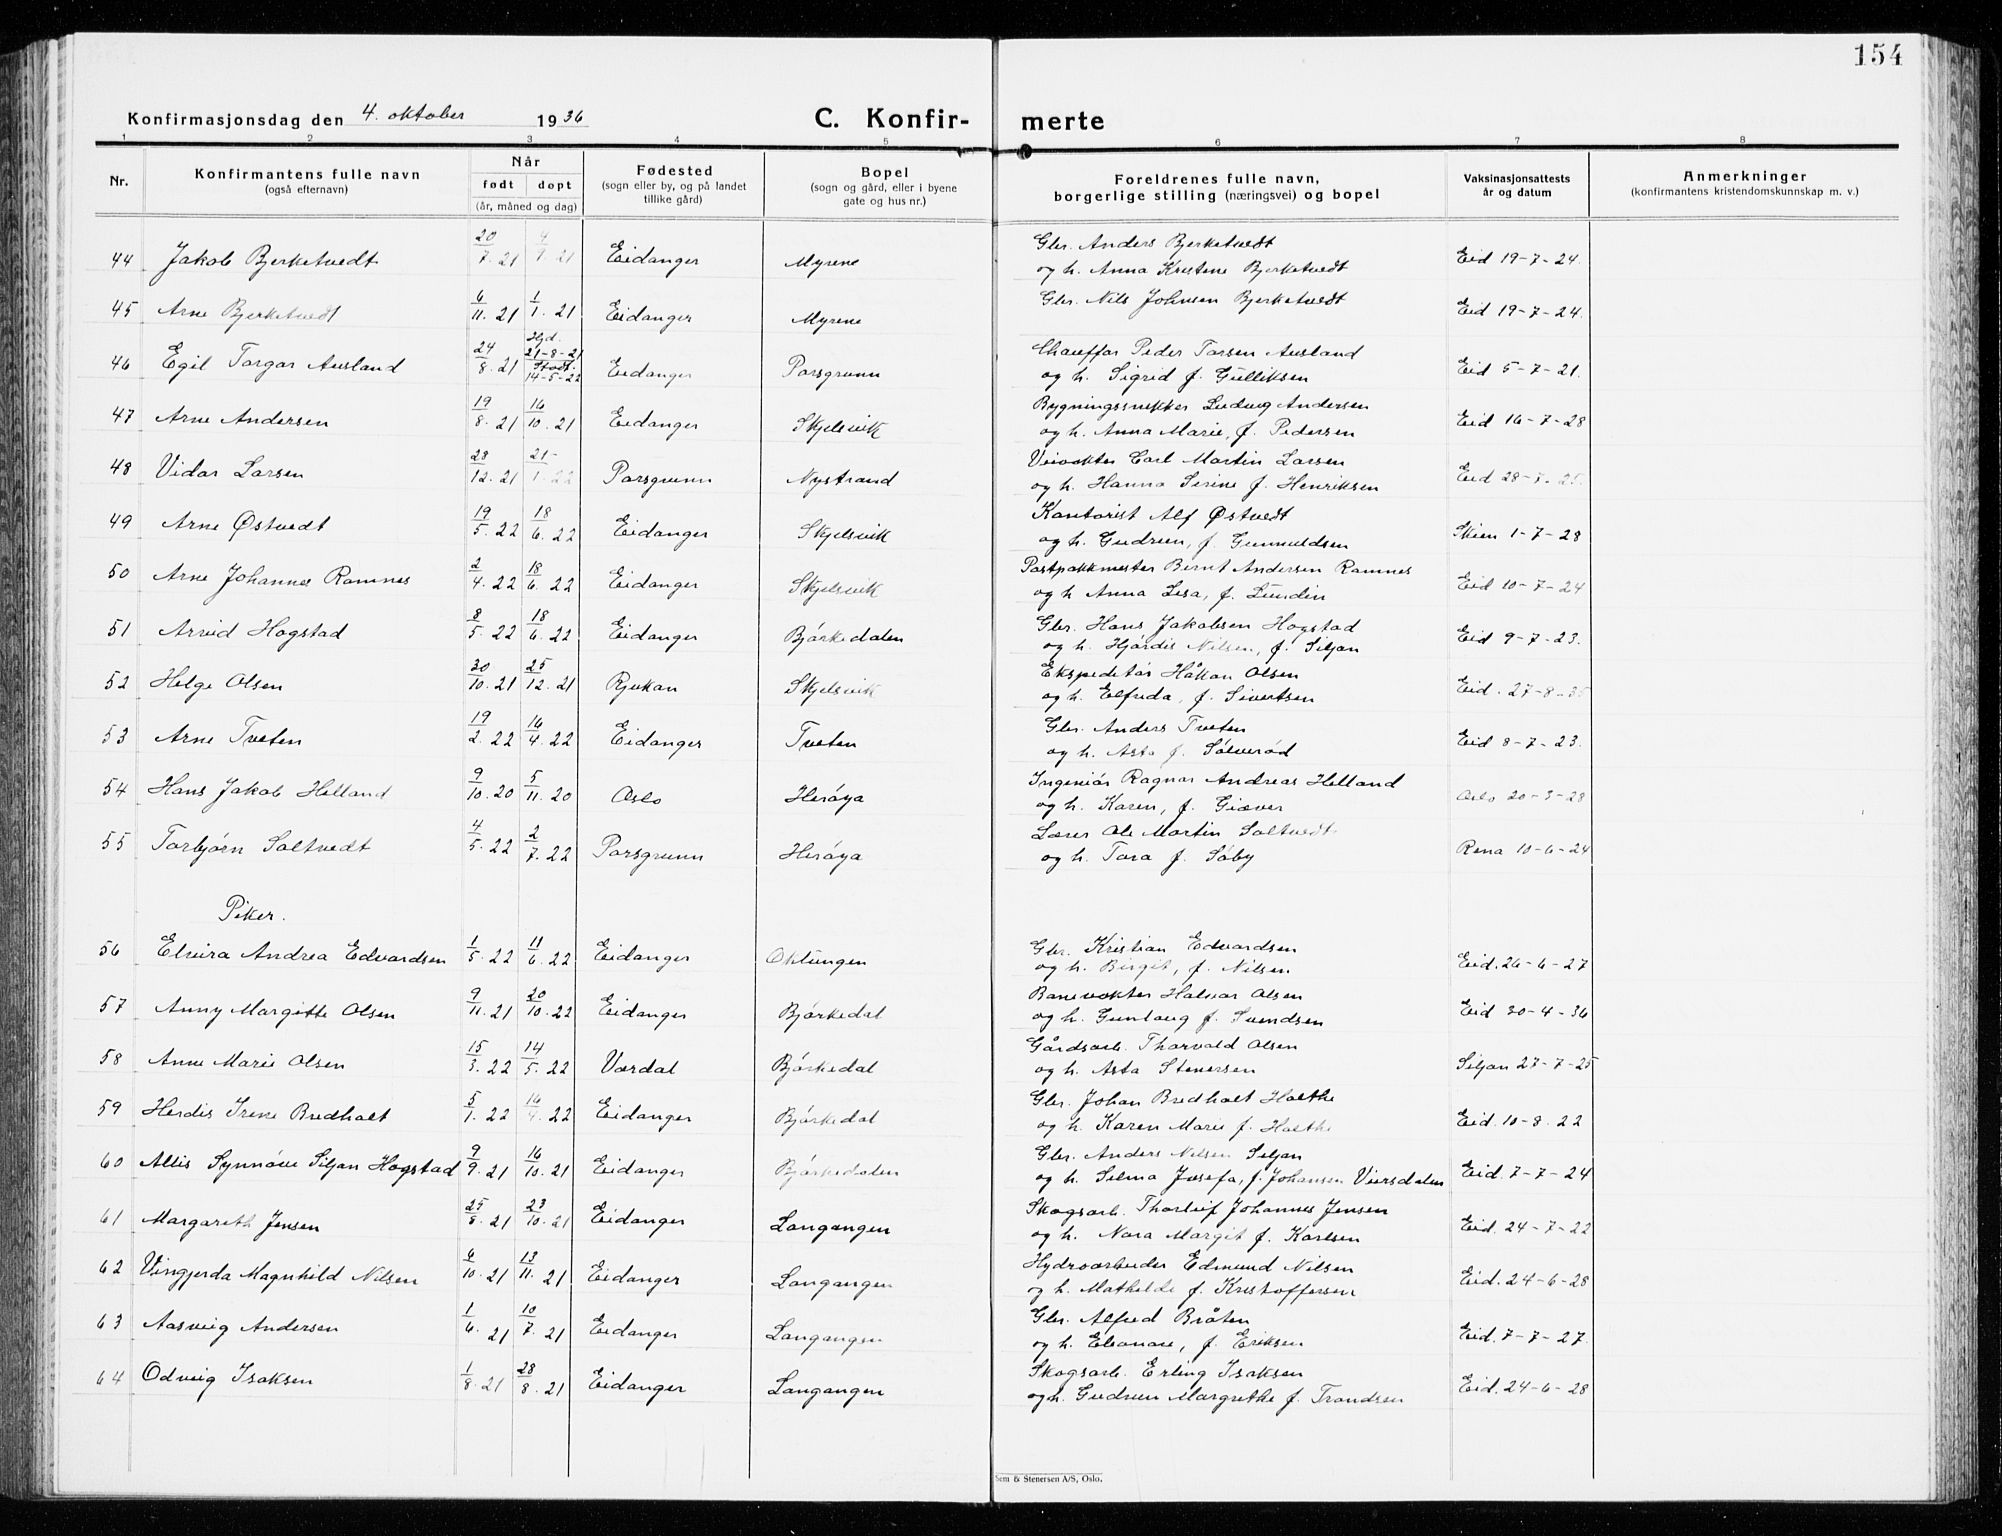 154
Konfirmasjonsdag den 4. oktober 1936 C. Konfir- merte
1 2 3 4 5 6 7 8
Nr. Konfirmantens fulle navn (også efternavn) Når født døpt (år, måned og dag) Fødested (sogn eller by, og på landet tillike gård) Bopel (sogn og gård, eller i byene gate og hus nr.) Foreldrenes fulle navn, borgerlige stilling (næringsvei) og bopel Vaksinasjonsattests år og datum Anmerkninger (konfirmantens kristendomskunnskap m. v.)
44 Jakob Bjerketvedt 20/7. 21 4/9. 21 Eidanger Myrene Gbr. Anders Bjerketvedt Eid 19-7-24.
og h. Anna Kristene Bjerketvedt
45 Arne Bjerketvedt 6/11. 21 1/1. 21 Eidanger Myrene Gbr. Nils Johnsen Bjerketvedt Eid 19-7-24.
46 Egil Torgar Ausland 24/8. 21 Hjd. 21-8-21 Stadf. 14-5-22 Eidanger Porsgrunn Chauffør Peder Torsen Ausland Eid 5-7-21.
og h. Sigrid f. Gulliksen
47 Arne Andersen 19/8. 21 16/10. 21 Eidanger Skjelsvik Bygningssnekker Ludvig Andersen Eid 16-7-28
og h. Anna Marie, f. Pedersen
48 Vidar Larsen 28/12. 21 21/1. 22 Porsgrunn Nystrand Veivokter Carl Martin Larsen Eid 28-7-25.
og h. Hanna Serine f. Henriksen
49 Arne Østvedt 19/5. 22 18/6. 22 Eidanger Skjelsvik Kontorist Alf Østvedt Skien 1-7-28
og h. Gudrun, f. Gunnuldsen
50 Arne Johannes Ramnes 2/4. 22 18/6. 22 Eidanger Skjelsvik Postpakkmester Bernt Andersen Ramnes Eid 10-7-24
og h Anna Lisa, f. Lundin
51 Arvid Hogstad 8/5. 22 18/6. 22 Eidanger Bjørkedalen Gbr. Hans Jakobsen Hogstad Eid 9-7-23.
og h. Hjørdis Nilsen, f. Siljan
52 Helge Olsen 30/10. 21 25/12. 21 Rjukan Skjelsvik Ekspeditør Håkon Olsen Eid. 27-8-35
og h. Elfrida, f. Sivertsen
53 Arne Tveten 19/2. 22 16/4. 22 Eidanger Tveten Gbr. Anders Tveten Eid 8-7-23.
og h. Asta f. Sølverød
54 Hans Jakob Helland 9/10. 20 5/11. 20 Oslo Herøya Ingeniør Ragnar Andreas Helland Oslo 20-3-28
og h. Karen, f. Giæver
55 Torbjørn Saltvedt 4/5. 22 2/7. 22 Porsgrunn Herøya Lærer Ole Martin Saltvedt Rena 10-6-24
og h. Tora f. Søby
Piker.
56 Elvira Andrea Edvardsen 1/5. 22 11/6. 22 Eidanger Oklungen Gbr. Kristian Edvardsen Eid. 26-6-27
og h. Birgit, f. Nilsen
57 Anny Margitte Olsen 9/11. 21 20/10. 22 Eidanger Bjørkedal Banevokter Halvor Olsen Eid 30-4-36
og h. Gunlaug f. Svendsen
58 Anne Marie Olsen 15/3. 22 14/5. 22 Vardal Bjørkedal Gårdsarb. Thorvald Olsen Siljan 27-7-25
og h. Asta Stenersen
59 Herdis Irene Bredholt 5/1. 22 16/4. 22 Eidanger Bjørkedal Gbr. Johan Bredholt Holthe Eid. 10-8. 22
og h. Karen Marie f. Holthe
60 Allis Synnøve Siljan Hogstad 9/9. 21 16/10. 21 Eidanger Bjørkedalen Gbr. Anders Nilsen Siljan Eid. 7-7-24
og h. Selma Josefa, f. Johansen Viersdalen
61 Margareth Jensen 25/8. 21 23/10. 21 Eidanger Langangen Skogsarb. Thorleif Johannes Jensen Eid. 24-7-22
og h. Nora Margit f. Karlsen
62 Vingjerda Magnhild Nilsen 6/10. 21 13/11. 21 Eidanger Langangen Hydroarbeider Edmund Nilsen Eid. 24-6-28
og h. Mathilde f. Kristoffersen
63 Aasveig Andersen 1/6. 21 10/7. 21 Eidanger Langangen Gbr. Alfred Bråten Eid. 7-7-27.
og h. Eleonore, f. Eriksen
64 Odveig Isaksen 1/8. 21 28/8. 21 Eidanger Langangen Skogsarb. Erling Isaksen Eid. 24-6-28
og h. Gudrun Margrethe f. Trondsen
Sem & Stenersen A/S, Oslo.